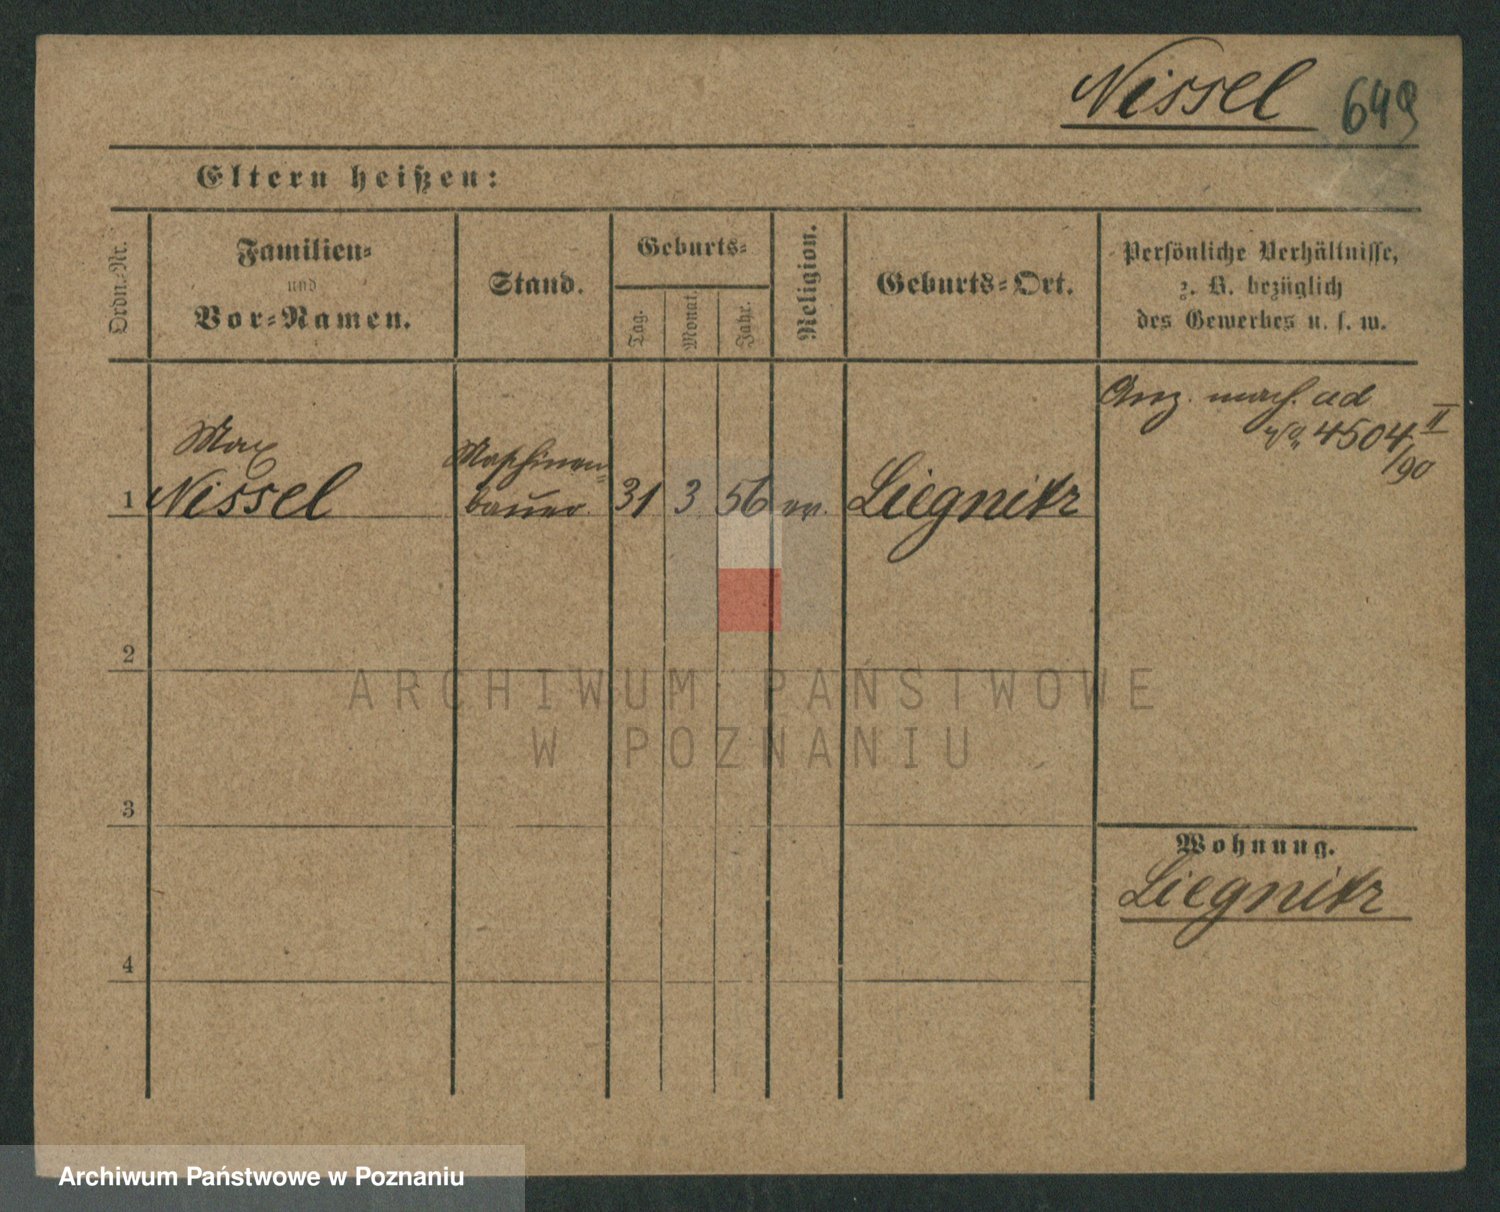 Nissel 649
Eltern heißen:
Ordn.-Nr.
Familien-
und
Vor-Namen.
Stand.
Geburts-
Tag.
Monat.
Jahr.
Religion.
Geburts-Ort.
Persönliche Verhältnisse,
z. B. bezüglich
des Gewerbes u. s. w.
Max
1 Nissel
Maschinen-
bauer.
31
3
56
ev.
Liegnitz
ad
4504 II
/90
2
3
4
Wohnung.
Liegnitz
ARCHIWUM PAŃSTWOWE
W POZNANIU
Archiwum Państwowe w Poznaniu